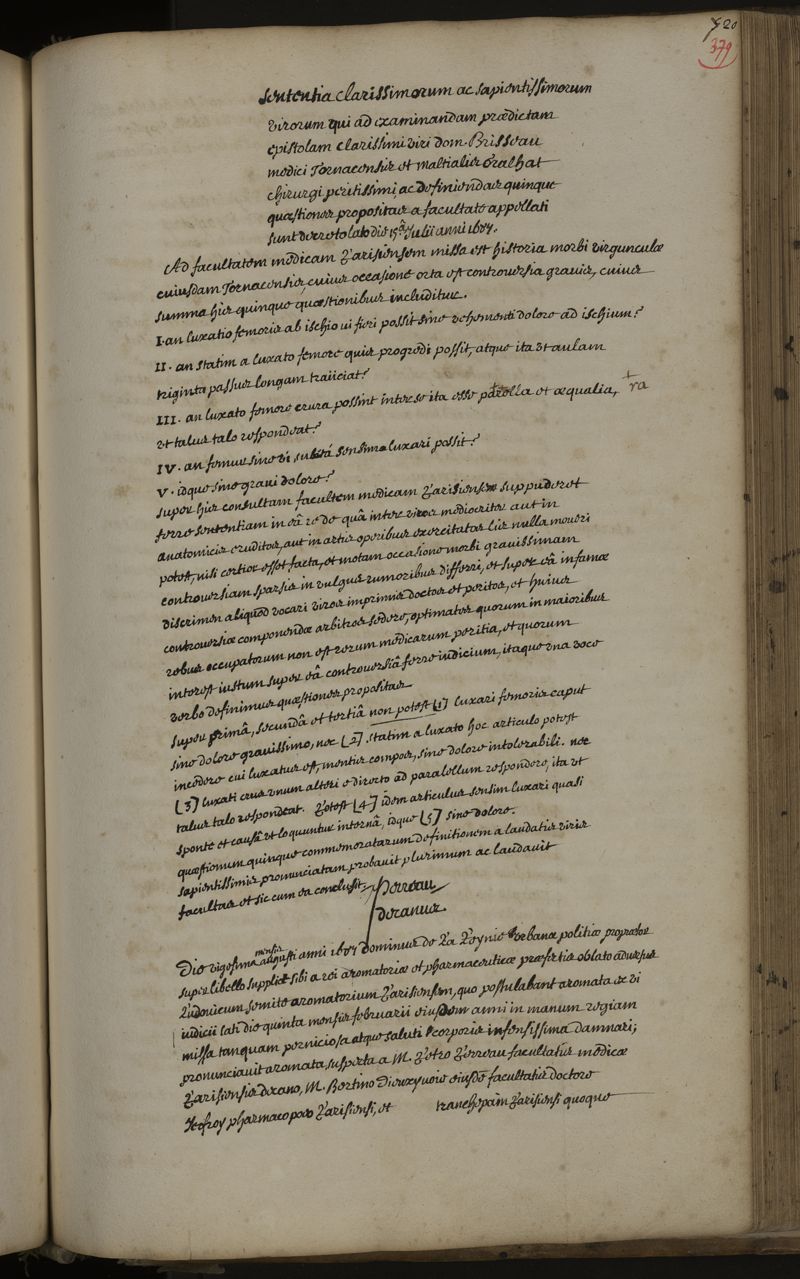 720
379
sententia clarissimorum ac sapientissimorum
virorum qui ad examinandam prædictam
epistolam clarissimi viri dom. Brisseau
medici Tornacensis et maltialis Eralhat
chirurgi peritissimi, ac definiendas quinque
quæstiones propositas a facultate appellati
sunt decreto lato die 15â Julii anni 1687.
Ad facultatem medicam Parisiensem missa est historia morbi virgunculæ
cuiusdam Tornacensis, cuius occasione orta est controversia gravis, cuius
summa his quinque quæstionibus includitur.
I. an luxatio femoris ab ischio ui fieri possit sine vehementi dolore ad ischium?
II. an statim a luxato femore quis progredi possit, atque ita vt aulam
triginta passus longam traiiciat?
III. an luxato femore crura possint inter se ita esse parella et æqualia, ra
vt talus talo respondeat?
IV. an femur sine vi, subitá sensim luxari possit?
V. idque sine graui dolore?
super his consultam facultem medicam Parisiensem suppuderet
ferre sententiam in eâ re de quâ inter viros mediocriter aut in
anatomicis eruditos, aut in artis operibus exercitatos lis nulla moueri
potest, nisi certior esset facta, et motam occasione morbi gravissimam
controuersiam sparsis in vulgus rumoribus differri, et super eâ infamæ
discrimen aliquod vocari viros imprimis doctos et peritos, et huius
controuersiæ componendæ arbitros sedere, optimates quorum in maioribus
rebus occupatorum non est rerum medicarum peritia, et quorum
interest iustum super eâ controuersiâ ferre iudicium, itaque vna voce
verbo definimus quæstiones propositas
super primâ, secundâ et tertiâ non potest (1) luxari femoris caput
sine dolore grauissimo, nec (2) statim a luxato hoc articulo potest
incedere cui luxatus est, mentis compos, sine dolore intolerabili. nec
(3) luxati crus vnum alteri e directo ad parallelum respondere, ita vt
talus talo respondeat. Potest (4) idem articulus sensim luxari quasi
sponte et causâ vt loquuntur internâ, idque (5) sine dolore.
quæstionum quinque commemoratarum definitionem a laudatis viris
sapientissimis pronunciatam probauit plurimum ac laudauit
facultas et sic cum ea conclusit, Perreau
decanus.
Die vigesima mensis augusti anni 1687 dominus de La Reynie Vrbanæ politiæ præpositus
super libello supplici sibi a rei aromatoriæ et pharmaceuticæ præfectis oblato aduersus
Ludouicum semite aromatorium Parisiensem, quo postulabant aromata ex vi
iudicii lati die quinta mensis februarii eiusdem anni in manum regiam
missa tanquam perniciosa atque saluti corporis infensissima damnari;
pronunciauit aromata suspecta a M. Petro Perreau facultatis medicæ
Parisiensis decano, M. Bertino Dieuxyuoie eiusdē facultatis doctore
pharmacopœo Parisiensi, et quoque